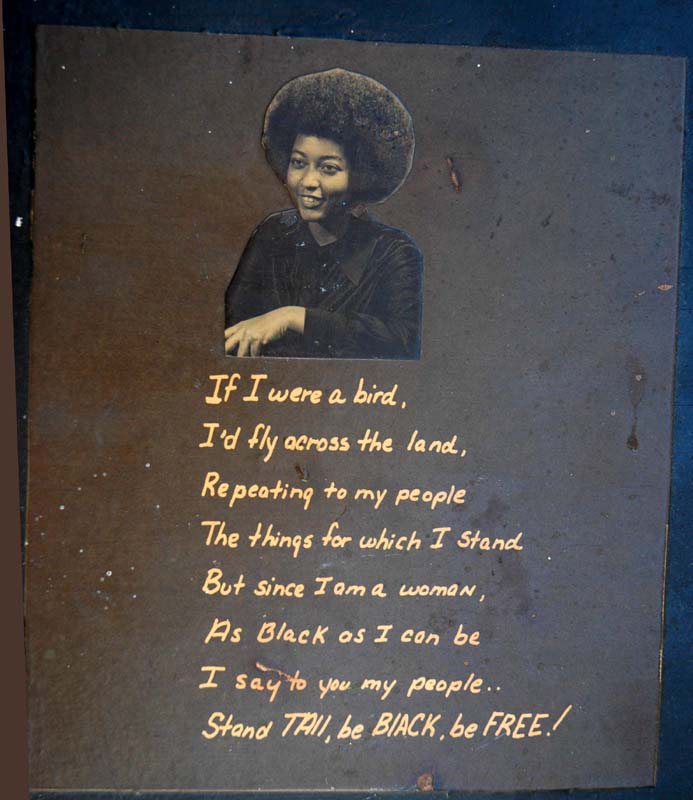 If I were a bird,
I'd fly across the land,
Repeating to my people
The things for which I stand
But since I am a woman,
As Black as I can be
I say to you my people..
Stand TAll, be BlACK, be FREE!